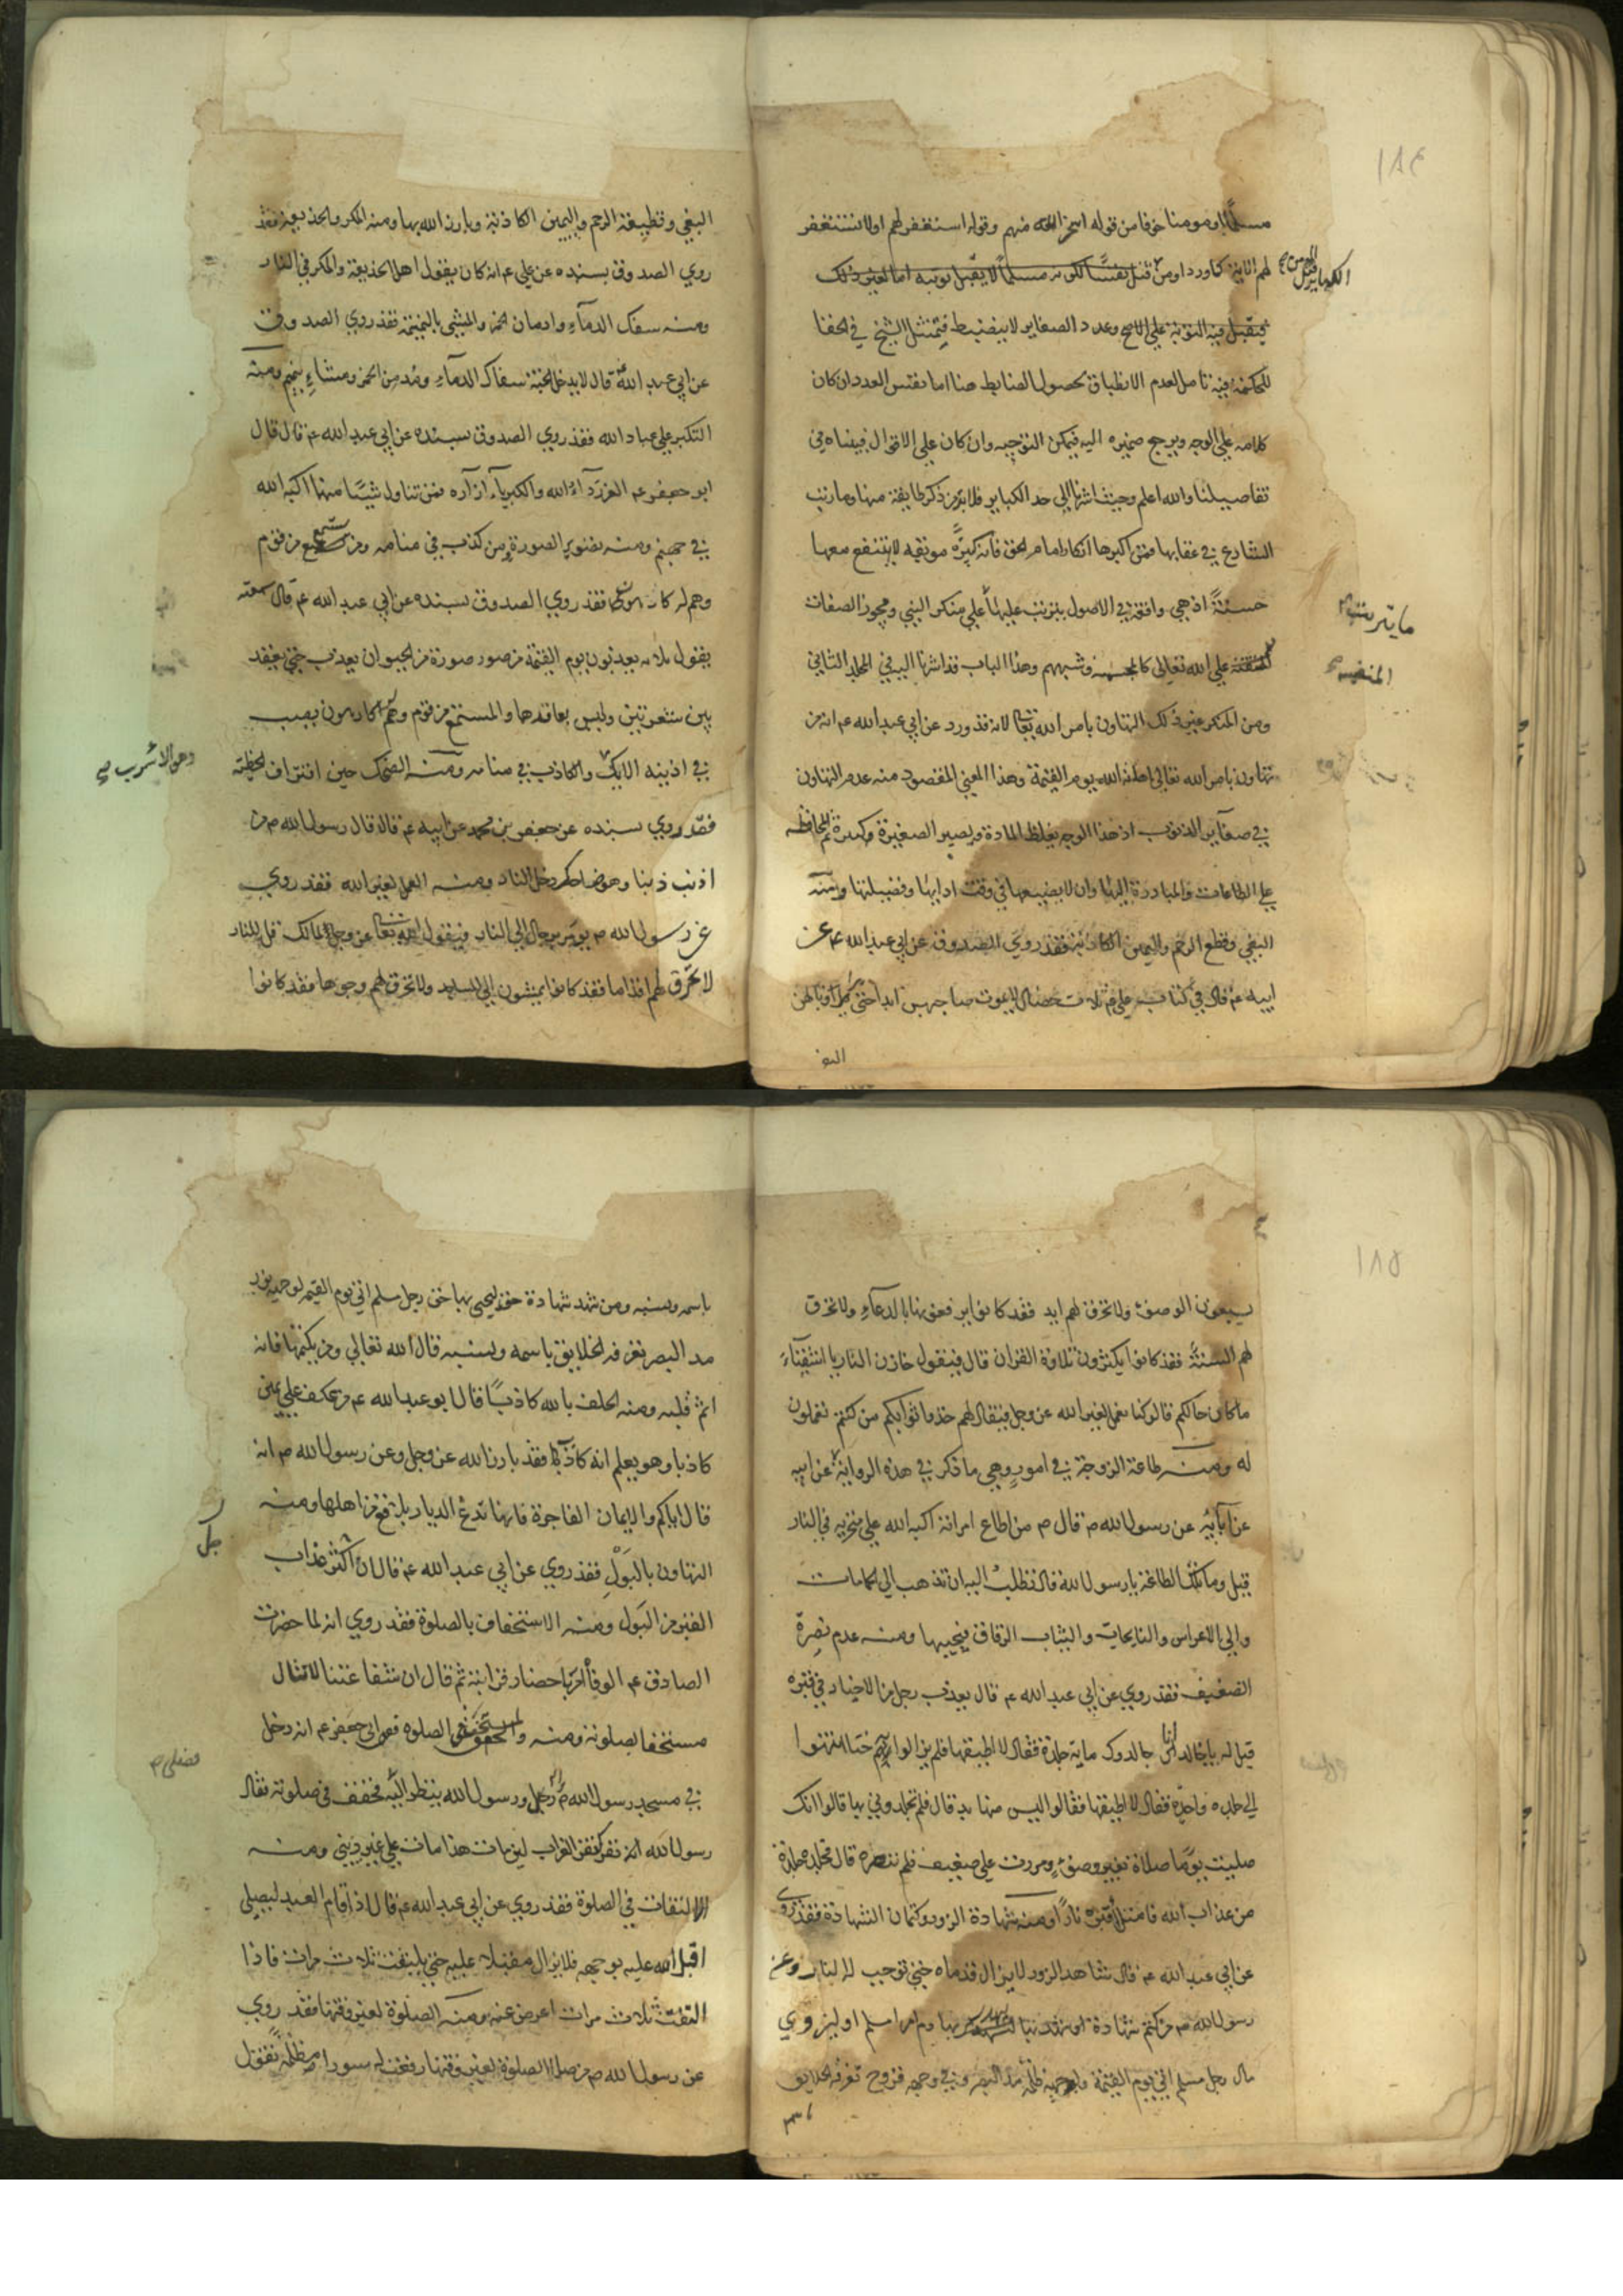 ١٨٤
مسلما او مومنا خوفا من قوله اسخر الله منهم وقوله استغفر لهم اولا تستغفر
لهم الاية كما ورد او من قتل نفسًا لكونه مسلمًا لا يقبل توبته اما لغير ذلك
فيقبل فيه التوبة على الاصح وعدد الصغاير لا ينضبط فتمثل الشيخ في الخفا
للحاكمة فيه تامل لعدم الانطباق بحصول الضابط هنا اما نفس العدد ان كان
كلامه على الوجه ويرجع ضميره اليه فيمكن التوجيه وان كان على الاقوال فبيناه في
تفاصيلنا والله اعلم وحيث اشرنا الى حد الكباير فلا بد من ذكر طايفة منها وما رتب
الشارع في عقابها فمن اكبرها انكار امام الحق فانه كبيرة موبقه لا ينتفع معها
حسنةً اذ هي وافقة في الاصول يترتب عليها على منكر النبي ومجوز الصفات
على الله تعالى كالمجسمة وشبههم وهذا الباب قد اشرنا اليه في المجلد الثاني
ما يترتب
ومن المنكر غير ذلك التهاون بامر الله تعالى لانه قد ورد عن ابي عبد الله عم انه من
تهاون بامر الله تعالى اهانه الله يوم القيمة وهذا المعنى المقصود منه عدم التهاون
في صغاير الذنوب اذ هذا الوجه يغلظ المادة ويصير الصغيرة كبيرة ثم المحافظه
على الطاعات والمبادرة اليها وان لا يضيعها في وقت ادايها وفضيلتها ومنه
البغي وقطع الرحم واليمين الكاذبة فقد روى الصدوق عن ابي عبد الله عم عن
ابيه عم قال في كتاب علي عم ثلاث خصال لا يموت صاحبهن ابدا حتى يرى وبالهن
البغي
البغي وقطيعة الرحم واليمين الكاذبة وبارز الله بها ومنه المكر والخديعة فقد
روي الصدوق بسنده عن علي عم انه كان يقول اهل الخديعة والمكر في النار
ومنه سفك الدماء وادمان الخمر والمشي بالنميمة فقد روي الصدوق
عن ابي عبد الله قال لا يدخل الجنة سفاك الدماء ومدمن الخمر ومشاء بنميم ومنه
التكبر على عباد الله فقد روي الصدوق بسنده عن ابي عبد الله عم قال قال
ابو جعفر عم العز رداء الله والكبرياء ازاره فمن تناول شيئًا منها اكبه الله
في جهنم ومنه تصوير الصورة ومن كذب في منامه ومن يستمع من قوم
وهم له كارهون فقد روي الصدوق بسنده عن ابي عبد الله عم قال سمعته
يقول ثلاثه يعذبون يوم القيمة من صور صورة من الحيوان يعذب حتى يعقد
بين شعرتين وليس بعاقدها والمستمع من قوم وهم له كارهون يصب
في اذنيه الانك والكاذب في منامه ومنه الضحك حين اقتراف الخطيئة
وهو الاسرب
فقد روي بسنده عن جعفر بن محمد عن ابيه عم قال قال رسول الله ص من
اذنب ذنبا وهو ضاحك دخل النار ومنه العمل لغير الله فقد روي
عن رسول الله ص يومر برجال الى النار فيقول الله تعالى عز وجل لمالك قل للنار
لا تحرق لهم اقداما فقد كانوا يمشون الى المساجد ولا تحرق لهم وجوها فقد كانوا
١٨٥
يسبغون الوضوء ولا تحرق لهم ايد فقد كانوا يرفعونها بالدعاء ولا تحرق
لهم السنة فقد كانوا يكثرون تلاوة القران قال فيقول خازن النار يا اشقياء
ما كان حالكم قالوا كنا نعمل لغير الله عز وجل فيقال لهم خذوا ثوابكم من كنتم تعملون
له ومنه طاعة الزوجة في امورٍ وهي ما ذكر في هذه الرواية عن ابيه
عن ابائه عن رسول الله ص قال ص من اطاع امراته اكبه الله على منخريه في النار
قيل وما تلك الطاعة يا رسول الله قال تطلب اليه ان تذهب الى الحمامات
والى الاعراس والنايحات والثياب الرقاق فيجيبها ومنه عدم نصرة
الضعيف فقد روي عن ابي عبد الله عم قال يعذب رجل من الاخيار في قبره
قيل له يا خالد انا جالدوك ماية جلدة فقال لا اطيقها فلم يزالوا حتى انتهوا
الى جلده واحدة فقال لا اطيقها فقالوا ليس منها بد قال فلم تجلدوني بها قالوا انك
صليت يومًا صلاة بغير وضوء ومررت على ضعيف فلم تنصره قال فجلده جلدة
من عذاب الله فامتلأ قبره نارًا ومنه شهادة الزور وكتمان الشهادة فقد روي
عن ابي عبد الله عم قال شاهد الزور لا يزال قدماه حتى توجب له النار وعن
رسول الله ص من كتم شهادة او شهد بها بها دم امرا مسلم او ليزوي
مال رجل مسلم اتى يوم القيمة ولوجهه ظلمة مد البصر وفي وجهه قروح تعرفه الخلايق
باسمه ونسبه ومن شهد شهادة حق ليحيى بها حق رجل مسلم اتى يوم القيمه لوجهه نور
مد البصر تعرفه الخلايق باسمه وبنسبه قال الله تعالى ومن يكتمها فانه
اثم قلبه ومنه الحلف بالله كاذبًا قال ابو عبد الله عم من حلف على يمين
كاذبا وهو يعلم انه كاذب فقد بارز الله عز وجل وعن رسول الله ص انه
قال اياكم والايمان الفاجرة فانها تدع الديار بلاقع من اهلها ومنه
التهاون بالبول فقد روي عن ابي عبد الله عم قال ان اكثر عذاب
القبر من البول ومنه الاستخفاف بالصلوة فقد روي انه لما حضرت
الصادق عم الوفاة امر باحضار قرابته ثم قال ان شفاعتنا لا تنال
مستخفا بصلوته ومنه الصلوة فعن ابي جعفر عم انه دخل
في مسجد رسول الله ص رجل ورسول الله ينظر اليه فخفف في صلوته فقال
رسول الله انه نقر كنقر الغراب لئن مات هذا مات على غير ديني ومنه
الالتفات في الصلوة فقد روي عن ابي عبد الله عم قال اذا قام العبد ليصلي
اقبل الله عليه بوجهه فلا يزال مقبلا عليه حتى يلتفت ثلاث مرات فاذا
التفت ثلاث مرات اعرض عنه ومنه الصلوة لغير وقتها فقد روي
عن رسول الله ص من صلى الصلوة لغير وقتها رفعت له سودا مظلمة تقول